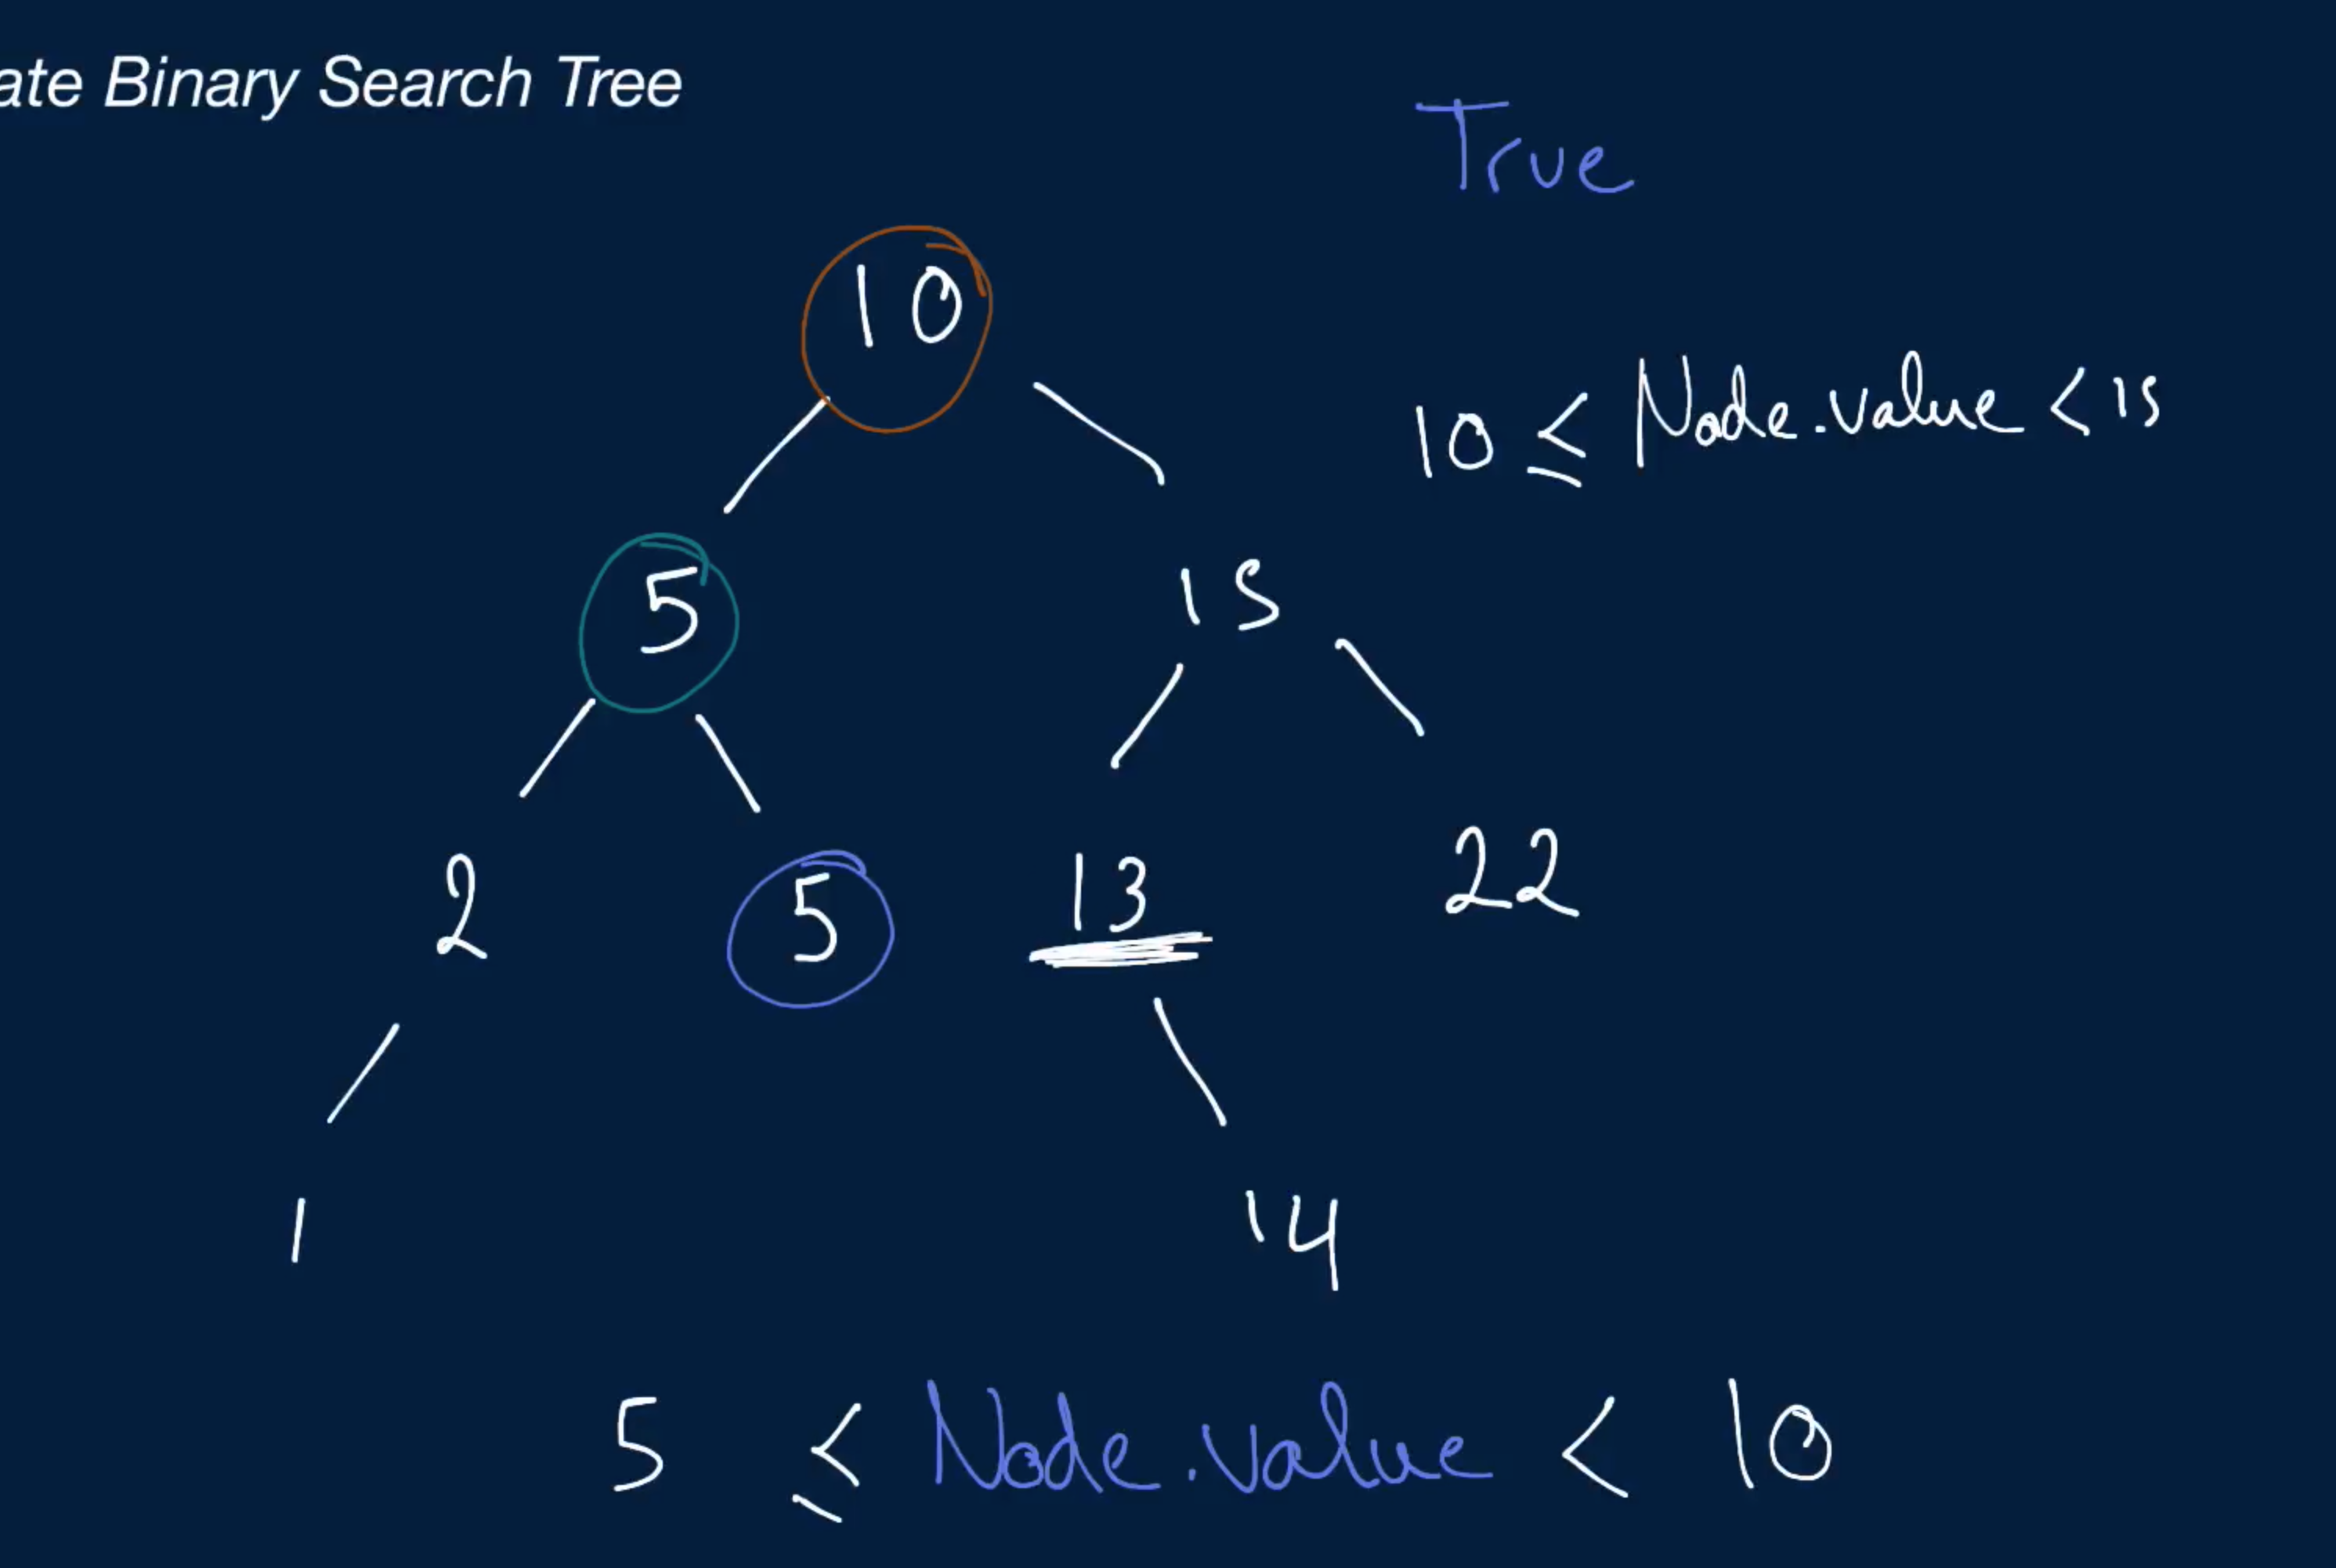 ate Binary Search Tree
True
10
10 ≤ Node.value < 15
5 15
2 5 13 22
1 14
5 ≤ Node.value < 10